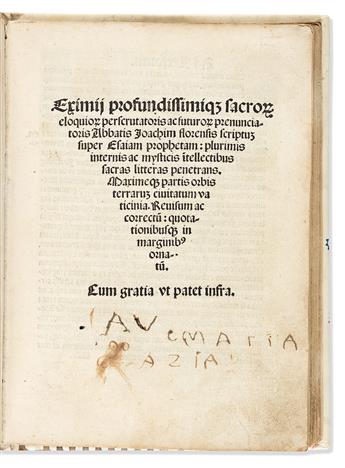 Eximij profundissimiqꝫ sacroꝝ
eloquioꝝ perscrutatoris ac futuroꝝ prenuncia-
toris Abbatis Joachim florensis scriptū
super Esaiam prophetam: plurimis
internis ac mysticis ītellectibus
sacras litteras penetrans.
Maximeqꝫ partis orbis
terrarū civitatum va
ticinia. Revisum ac
correctū: quota-
tionibusqꝫ in
marginibꝰ
orna-
tū.
Cum gratia vt patet infra.
AVEMARIA
AZIA